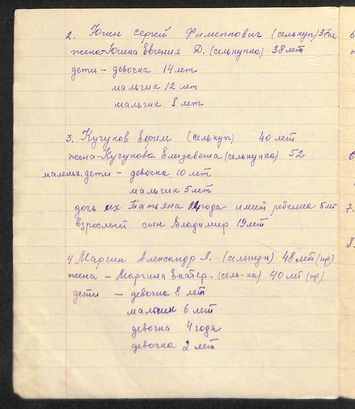 2. Юнин Сергей Филиппович (селькуп) 37 лет
жена-Юнина Евгения Д. (селькупка) 38 лет
дети - девочка 14 лет
мальчик 12 лет
мальчик 8 лет
3. Кучуков Ефим (селькуп) 40 лет
жена-Кучукова Елизавета (селькупка) 52
маленьк. дети - девочка 10 лет
мальчик 5 лет
дочь их Татьяна имеет ребенка 5 лет
взрослый сын Владимир 19 лет
4. Маргин Александр А. (селькуп) 48 лет (пр)
жена - Маргина Екатер. (сель-ка) 40 лет (пр)
дети - девочка 8 лет
мальчик 6 лет
девочка 4 года
девочка 2 лет
6
6
7.
8.